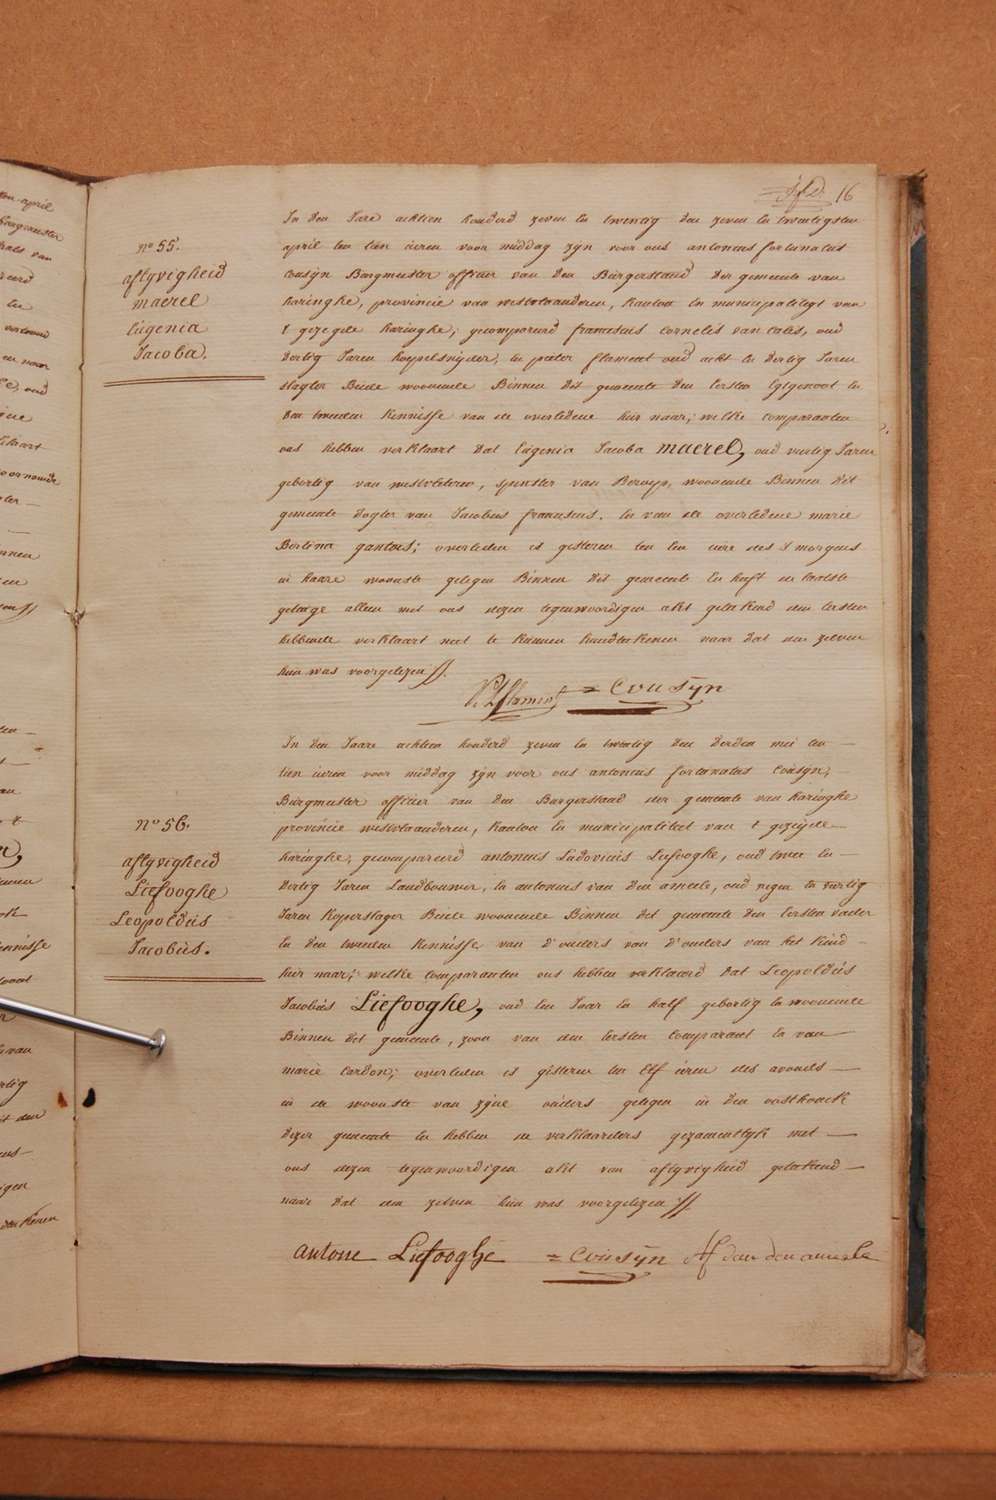 16
n° 55.
aflyvigheid
maerel
Eugenia
Jacoba.
In den Jare achtien honderd zeven en twentig den zeven en twintigsten
april ten tien uren voor middag zijn voor ons antonius fortunatus
cousijn Borgmeester officier van den Burgerstand der gemeente van
haringhe, provincie van westvlaanderen, kanton en municipaliteyt van
t gezegde haringhe, gecompareerd franciscus Cornelis van cales, oud
dertig Jaren koopelsnijder, en pieter flament oud acht en dertig Jaren
slagter Beide woonende Binnen dit gemeente den Eersten Egtgenoot en
den tweeden kennisse van de overledene hier naar; welke comparanten
ons hebben verklaart dat Eugenia Jacoba maerel, oud veertig Jaren
gebortig van westvleteren, spinster van Beroep, woonende Binnen dit
gemeente dogter van Jacobus franciscus. en van de overledene marie
Bertina gantois; overleden is gisteren ten een ure des s' morgens
in haare woonste gelegen Binnen dit gemeente En haft de laetste
getuige alleen met ons dezen tegenwoordigen akt getekend den eersten
hebbende verklaart niet te kunnen handtekenen naar dat den zelven
hun was voorgelezen //.
P. flament = Cousyn
n° 56.
aflyvigheid
Liefooghe
Leopoldus
Jacobus.
In den Jaare achtien honderd zeven en twentig den derden mei ten —
tien uren voor middag zijn voor ons antonius fortunatus Cousijn,
Burgmeester officier van den Borgerstand der gemeente van haringhe
provincie westvlaanderen, kanton en municipaliteit van t gezeijde —
haringhe, gecompareerd antonius Ludovicus Liefooghe, oud twee en —
dertig Jaren Landbouwer, en antonius van den ameele, oud negen en veertig
Jaren koperslager Beide woonende Binnen dit gemeente den Eersten vader
En den tweeden kennisse van d'ouders van d'ouders van het kind —
hier naar; welke comparanten ons hebben verklaerd dat Leopoldus
Jacobus Liefooghe, oud Een Jaar En half gebortig En woonende
Binnen dit gemeente, zoon van den Eersten Comparant En van —
marie Cardon; overleden is gisteren ten Elf uren des avonds —
in de woonste van zijne ouders gelegen in den oosthoeck
dezer gemeente En hebben de verklaerders gezamentlijk met —
ons dezen tegenwoordigen akt van aflyvigheid getekend —
naar dat den zelven hun was voorgelezen //.
Antone Liefooghe = Cousijn Af Van den ameele